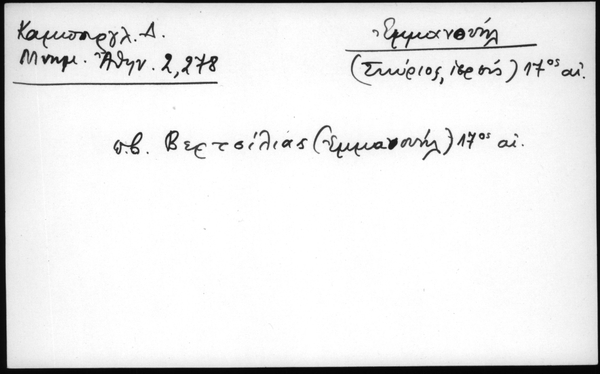 Καμπούρογλ. Δ.
Μνημ. Ἀθην. 2,278
Ἐμμανουήλ
(Σκύριος, ἱερεύς) 17ος αἰ.
π.β. Βερτσέλιας (Ἐμμανουήλ) 17ος αἰ.